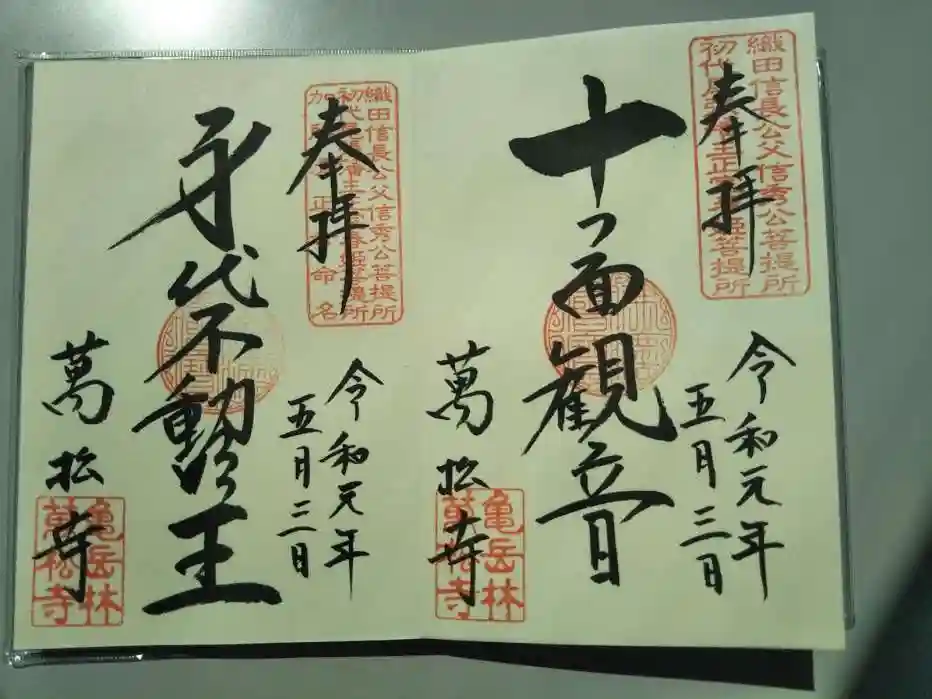 織田信長公父信秀公菩提所
初代尾張藩主正室春姫菩提所
奉拝
十一面観音
令和元年
五月三日
萬松寺
亀岳林
萬松寺
織田信長公父信秀公菩提所
初代尾張藩主正室春姫菩提所
奉拝
身代不動明王
令和元年
五月三日
萬松寺
亀岳林
萬松寺